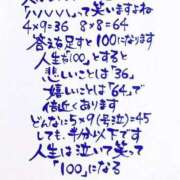 「ハハハハ」って笑いますよね
4×9=36　8×8=64
答えを足すと100になります
人生を「100」とすると
悲しいことは「36」
嬉しいことは「64」で
倍近くあります
どんなに5×9(号泣)=45
しても、半分以下です
人生は泣いて笑って
「100」になる